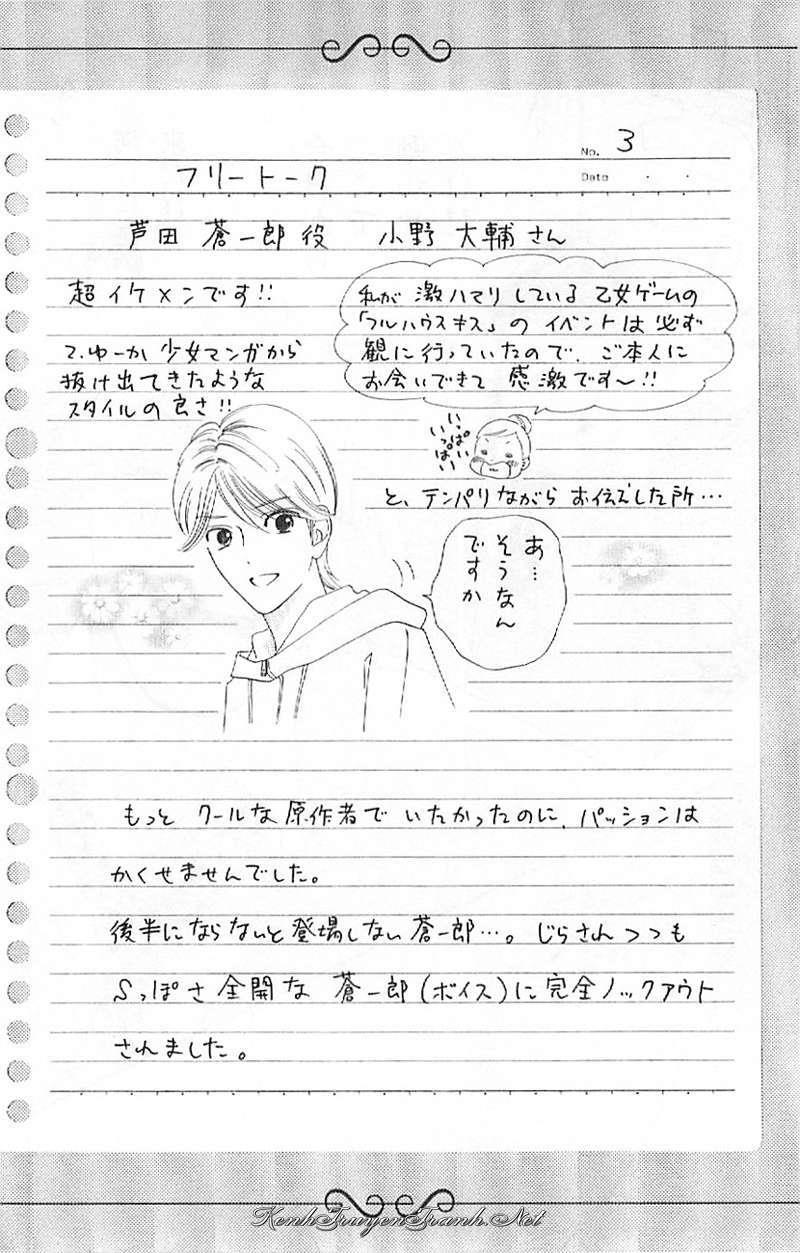 No. 3
Date . .
フリートーク
芦田 蒼一郎役 小野 大輔さん
超イケメンです!!
てゆーか少女マンガから
抜け出てきたような
スタイルの良さ!!
私が激ハマりしている乙女ゲームの
「フルハウスキス」のイベントは必ず
観に行っていたので、ご本人に
お会いできて感激です〜!!
いっぱい
いっぱい
と、テンパりながらお伝えした所…
あ…
そうなん
ですか
もっとクールな原作者でいたかったのに、パッションは
かくせませんでした。
後半にならないと登場しない蒼一郎…。じらされつつも
Sっぽさ全開な蒼一郎(ボイス)に完全ノックアウト
されました。
KenhTruyenTranh.Net